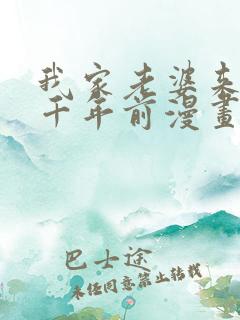 我家老婆来
千年前漫畫
巴士途
未经同意禁止转载